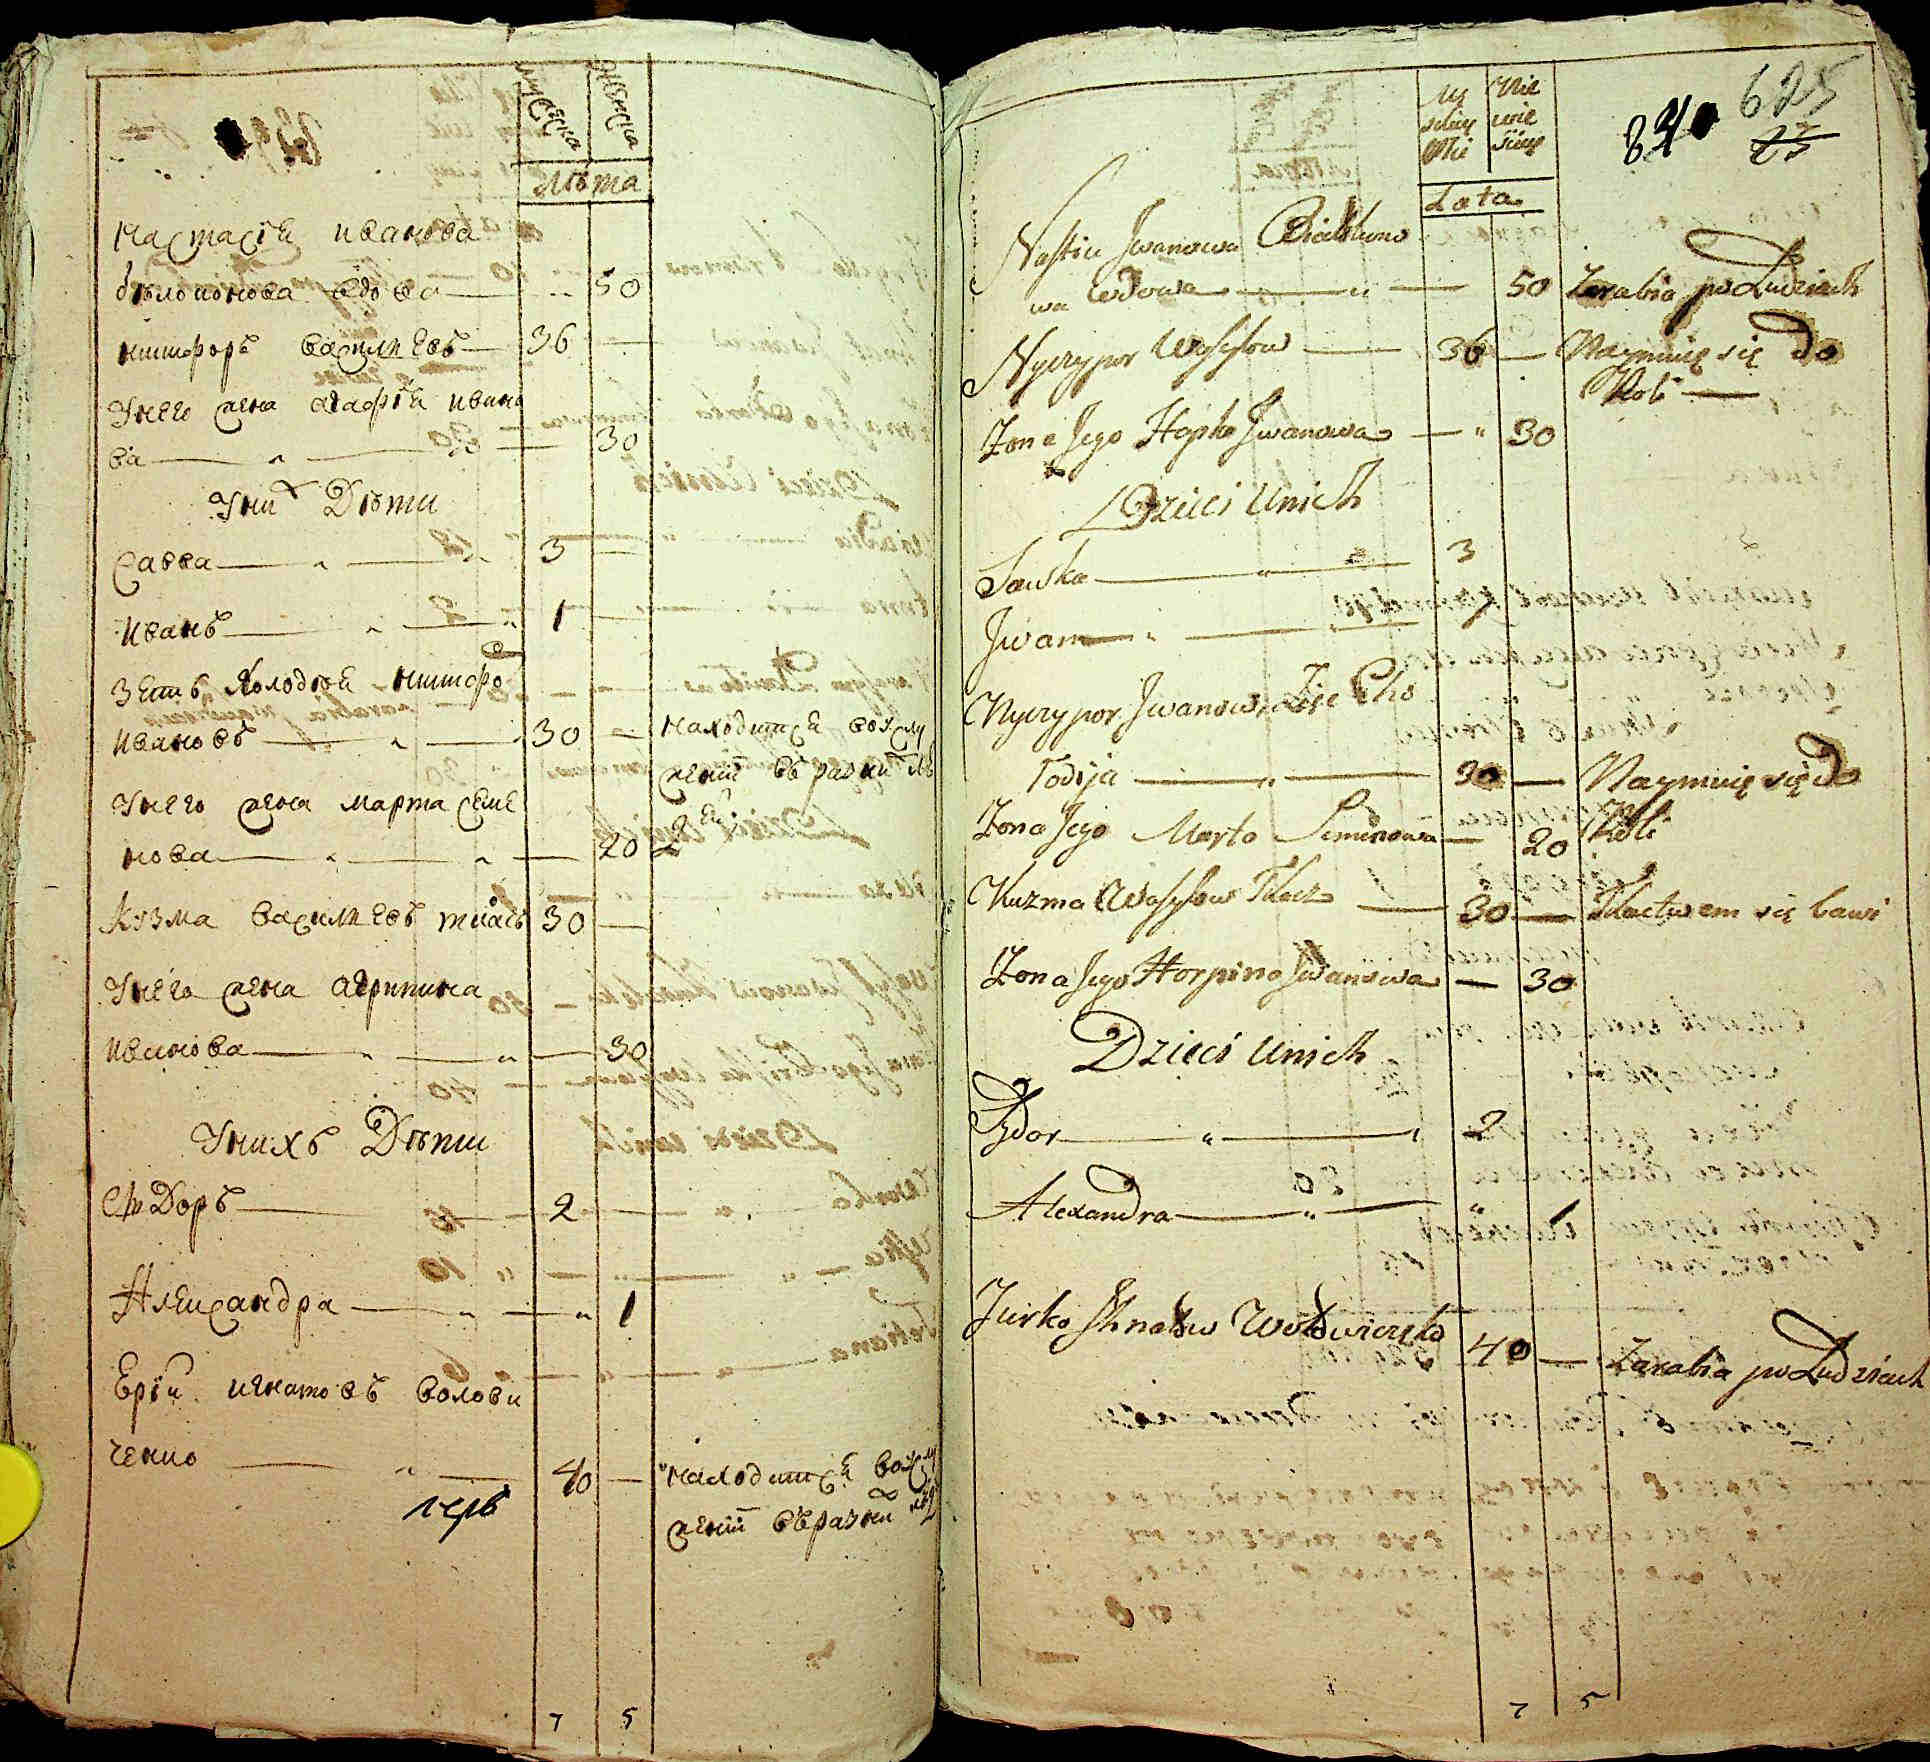 мужеска
женска
лѣта
Настасїя иванова
бѣлоконова вдова — 50
никифоръ васильевъ — 36
Унего жена агафїя ивано
ва — 30
Уних Дѣти
Савва — 3
иванъ — 1
зять холодїй никифо
ивановъ — 30 — находится воуслу
женїи въ разни
Унего жена марта семе
нова — 20
Кузма васильевъ ткачь 30 —
Унего жена агрипина
иванова — 30
Унихъ Дѣти
Фѣдоръ — 2
Александра — 1
Ерїй игнатовъ волови
ченко — 40 — находится воуслу
женїи въразни
7 5
840 625
23
Lata
Nastia Jwanowa Białokono
wa Wdowa — 50 Zarabia po Ludziach
Nyczypor Wasylow — 36 — Naymuię się do
Robi —
Zona Jego Hapka Jwanowa — 30
Dzieci Unich
Sawka — 3
Jwan —
Nyczypor Jwanow Zięć Cho
łodija — 30 — Naymuię się do
Zona Jego Marta Semenowa — 20 Robi
Kuzma Wasylow Tkacz — 30 — Tkactwem się bawi
Zona Jego Horpina Jwanowa — 30
Dzieci Unich
Fydor — 2
Alexandra — 1
Jurko Jhnatow Wołowiczenko 40 — Zarabia po Ludziach
7 5